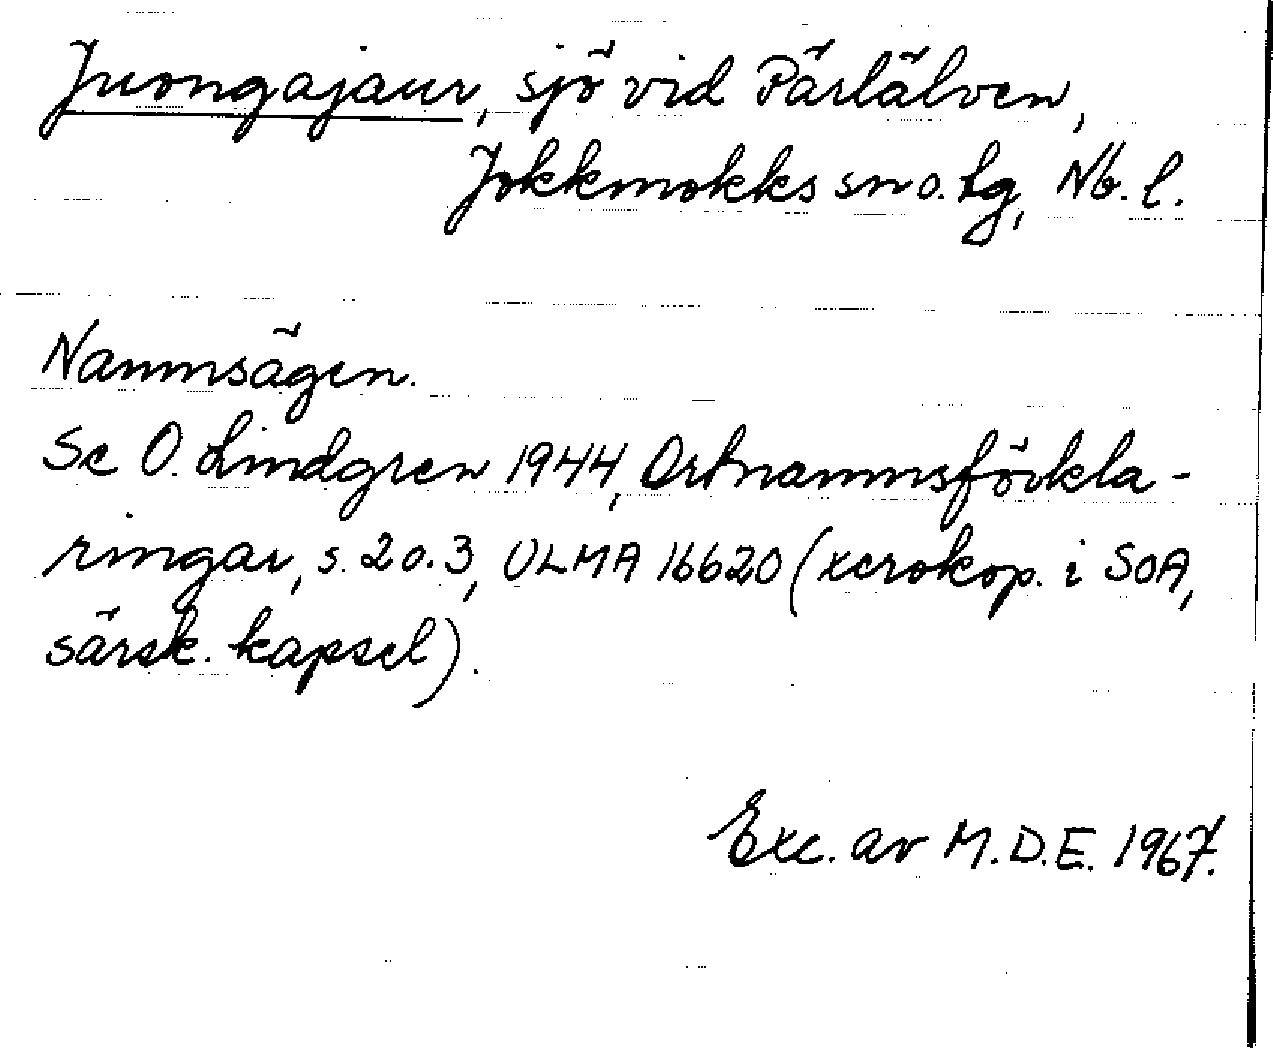 Juongajaur, sjö vid Pärlälven,
Jokkmokks sn o. tg, Nb. l.
Namnsägen.
Se O. Lindgren 1944, Ortnamnsförkla-
ringar, s. 2 o. 3, ULMA 16620 (xerokop. i SOA,
särsk. kapsel).
Exc. av M.D.E. 1967.